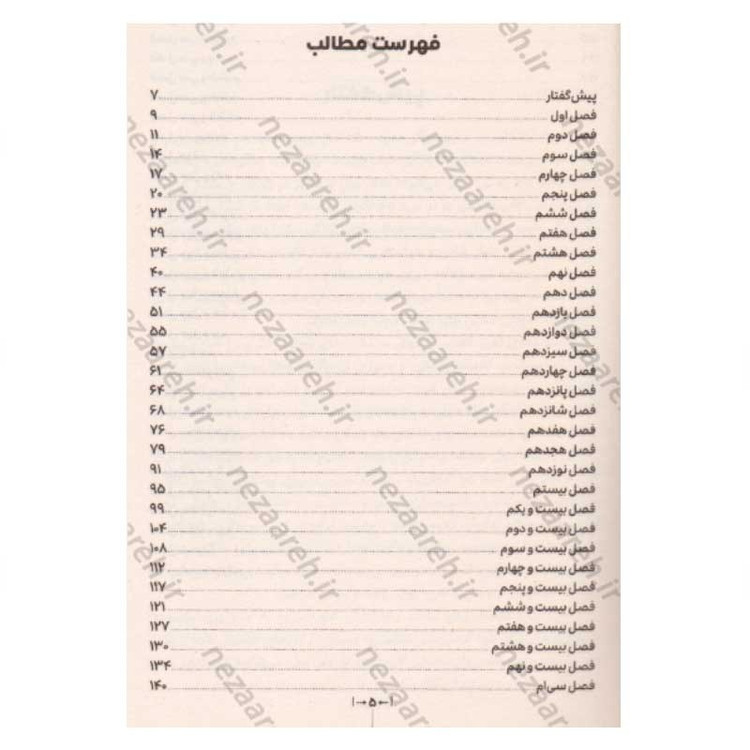 فهرست مطالب
پیش‌گفتار ۷
فصل اول ۹
فصل دوم ۱۱
فصل سوم ۱۴
فصل چهارم ۱۷
فصل پنجم ۲۰
فصل ششم ۲۳
فصل هفتم ۲۹
فصل هشتم ۳۴
فصل نهم ۴۰
فصل دهم ۴۴
فصل یازدهم ۵۱
فصل دوازدهم ۵۵
فصل سیزدهم ۵۷
فصل چهاردهم ۶۱
فصل پانزدهم ۶۴
فصل شانزدهم ۶۸
فصل هفدهم ۷۶
فصل هجدهم ۷۹
فصل نوزدهم ۹۱
فصل بیستم ۹۵
فصل بیست و یکم ۹۹
فصل بیست و دوم ۱۰۴
فصل بیست و سوم ۱۰۸
فصل بیست و چهارم ۱۱۲
فصل بیست و پنجم ۱۱۷
فصل بیست و ششم ۱۲۱
فصل بیست و هفتم ۱۲۷
فصل بیست و هشتم ۱۳۰
فصل بیست و نهم ۱۳۴
فصل سی‌ام ۱۴۰
۵
nezaareh.ir